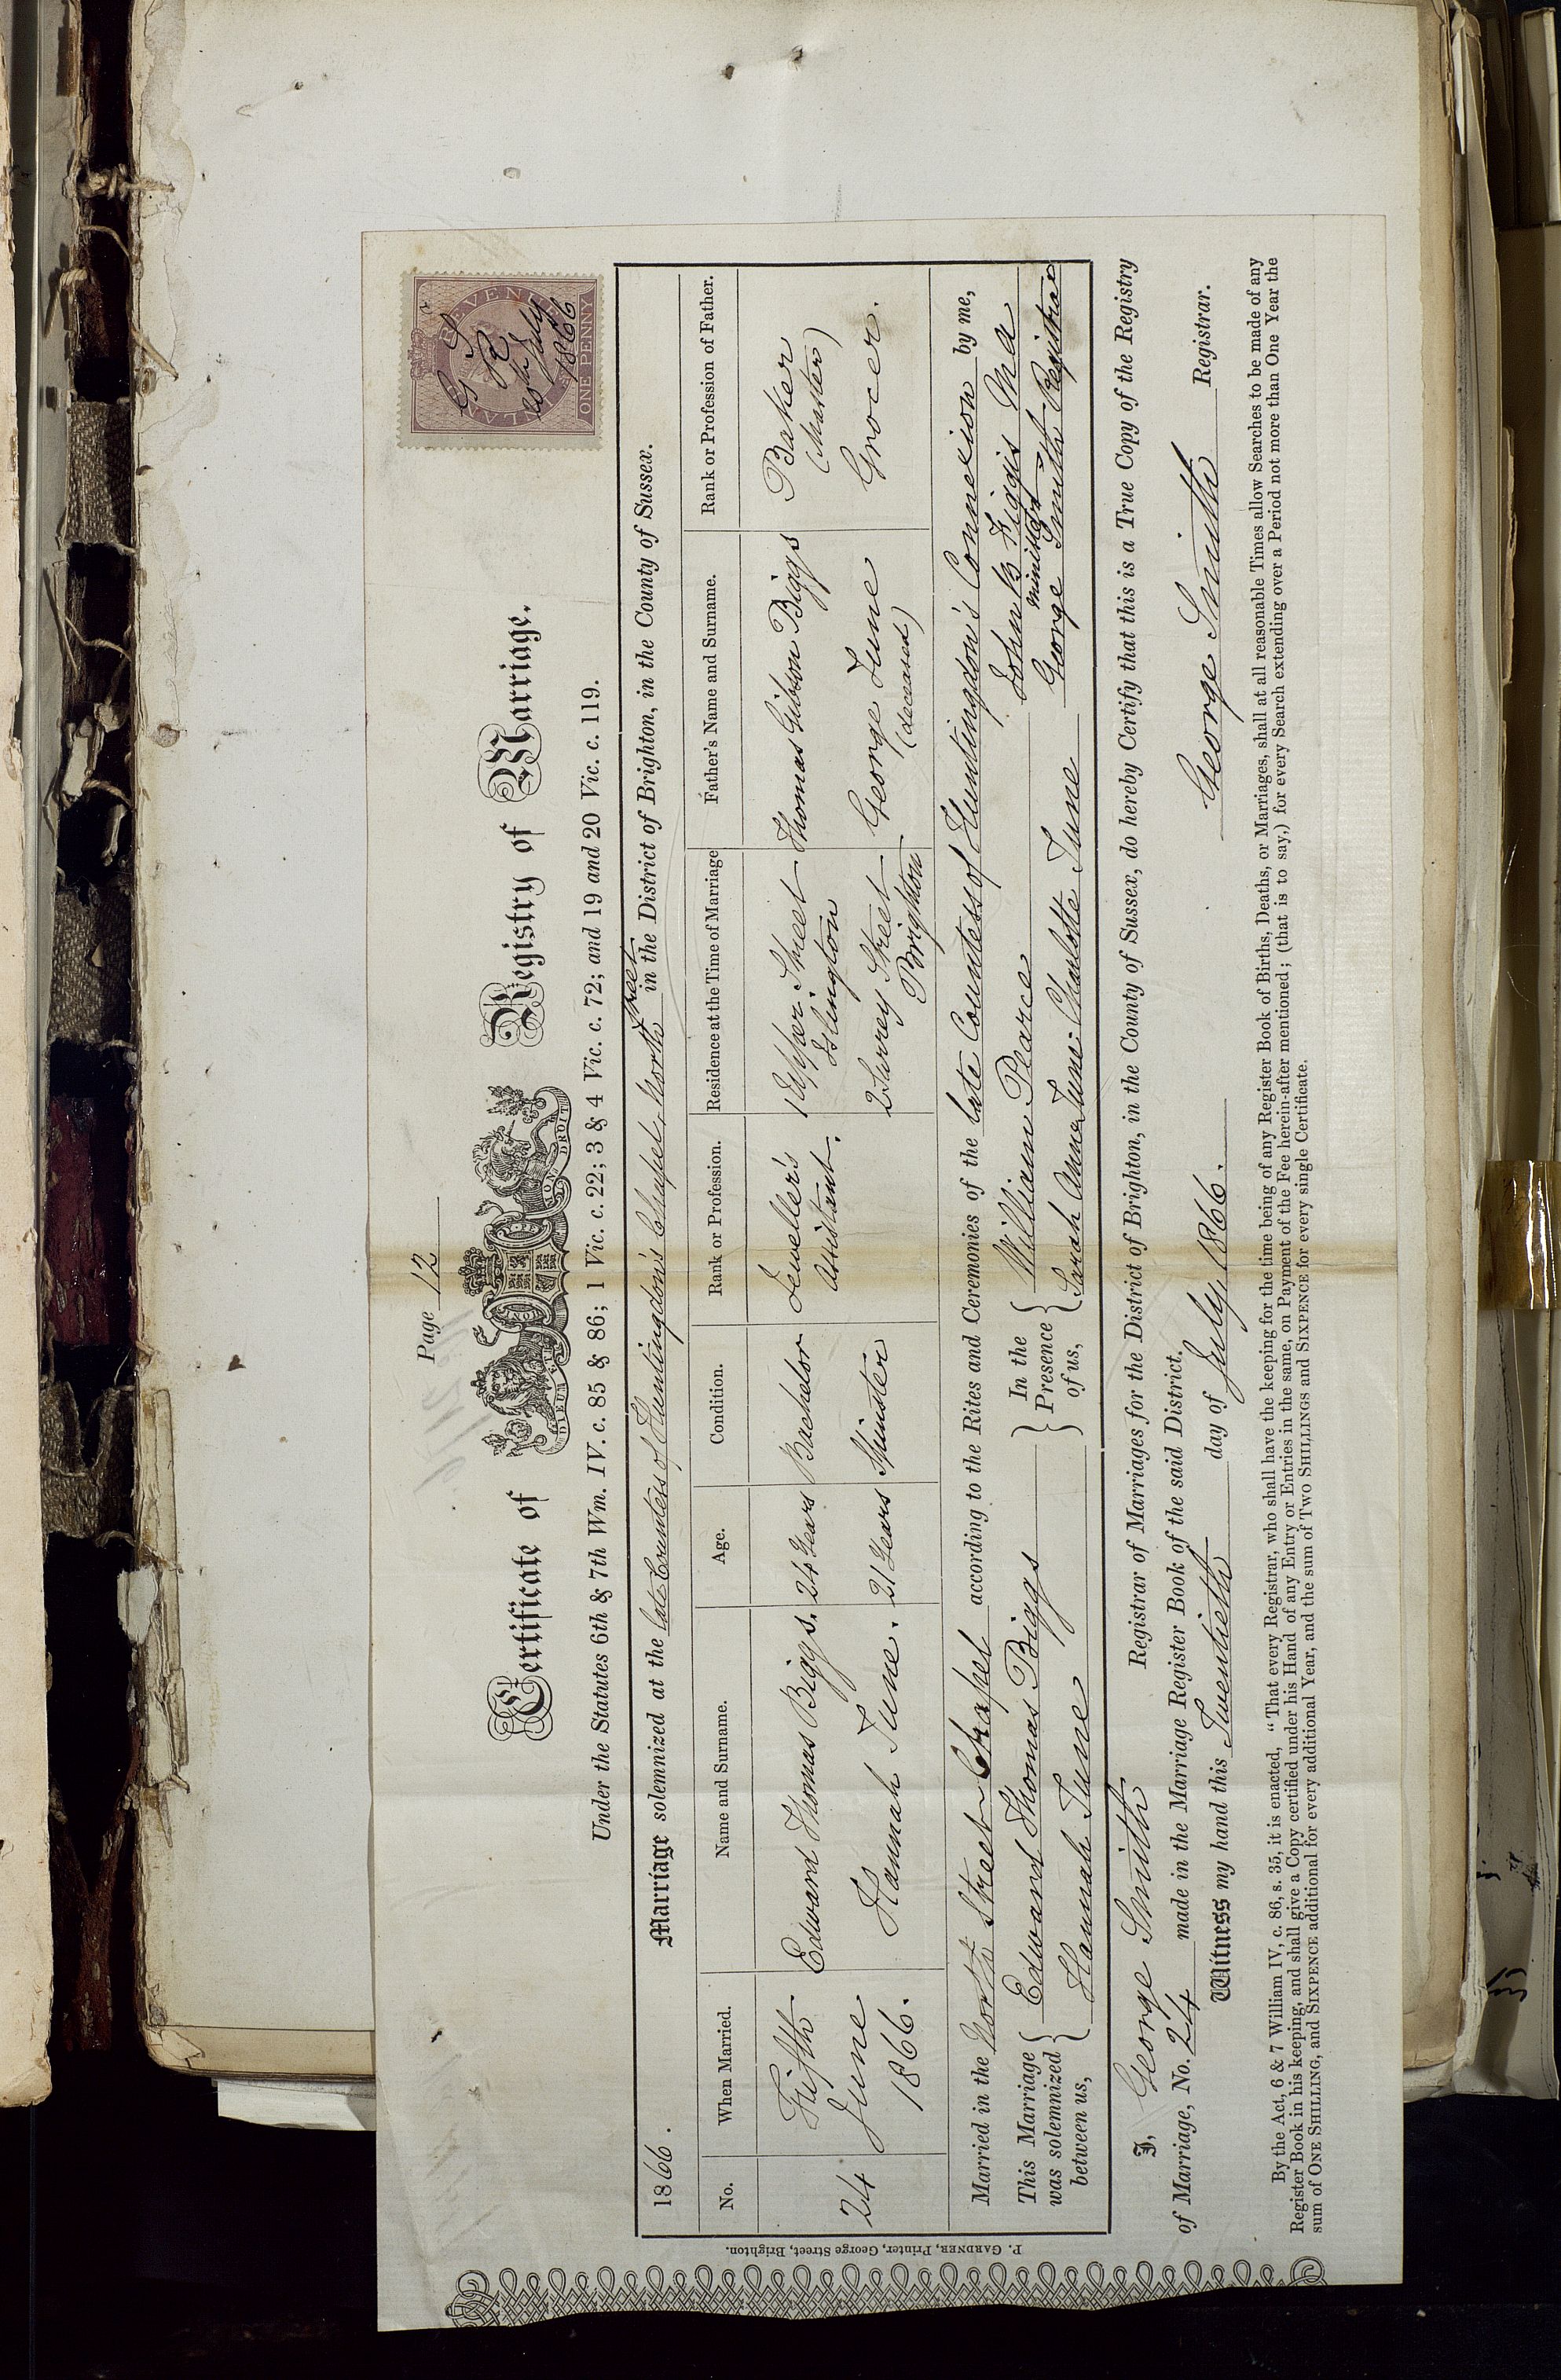 Page 12
Certificate of Registry of Marriage.
DIEU ET MON DROIT
Under the Statutes 6th & 7th Wm. IV. c. 85 & 86; 1 Vic. c. 22; 3 & 4 Vic. c. 72; and 19 and 20 Vic. c. 119.
G S
R
20th July
1866
ONE PENNY
1866. Marriage solemnized at the late Countess of Huntingdon's Chapel, North Street in the District of Brighton, in the County of Sussex.
No. When Married. Name and Surname. Age. Condition. Rank or Profession. Residence at the Time of Marriage Father's Name and Surname. Rank or Profession of Father.
24 Fifth June 1866.
Edward Thomas Biggs. 24 Years Bachelor Jeweller's Assistant. 1 Upper Street Islington Thomas Gibson Biggs Baker (Master)
Hannah Tune. 21 Years Spinster 2 Surrey Street Brighton George Tune (deceased) Grocer.
Married in the North Street Chapel according to the Rites and Ceremonies of the late Countess of Huntingdon's Connexion by me,
This Marriage was solemnized between us,
Edward Thomas Biggs
Hannah Tune
In the Presence of us,
William Pearce
Sarah Anne Tune. Charlotte Tune
John B Figgis M A
minister
George Smith Registrar
I, George Smith Registrar of Marriages for the District of Brighton, in the County of Sussex, do hereby Certify that this is a True Copy of the Registry
of Marriage, No. 24 made in the Marriage Register Book of the said District.
Witness my hand this Twentieth day of July 1866. George Smith Registrar.
By the Act, 6 & 7 William IV, c. 86, s. 35, it is enacted, "That every Registrar, who shall have the keeping for the time being of any Register Book of Births, Deaths, or Marriages, shall at all reasonable Times allow Searches to be made of any
Register Book in his keeping, and shall give a Copy certified under his Hand of any Entry or Entries in the same, on Payment of the Fee herein-after mentioned; (that is to say,) for every Search extending over a Period not more than One Year the
sum of ONE SHILLING, and SIXPENCE additional for every additional Year, and the sum of TWO SHILLINGS and SIXPENCE for every single Certificate.
P. GARDNER, Printer, George Street, Brighton.